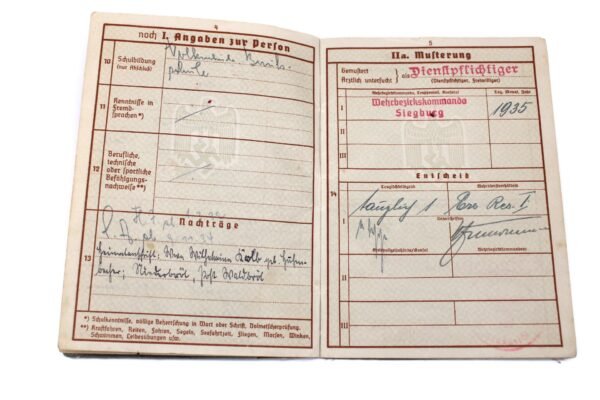 4
noch I. Angaben zur Person
10
Schulbildung
(nur Abschluß)
Volksschule, Berufs-
schule
11
Kenntnisse in
Fremd-
sprachen *)
12
Berufliche,
technische
oder sportliche
Befähigungs-
nachweise **)
Nachträge
13
Heimatanschrift: Frau Wilhelmine Kolb geb.
Niederbröl, Post Waldbröl
*) Schulkenntnisse, völlige Beherrschung in Wort oder Schrift, Dolmetscherprüfung.
**) Kraftfahren, Reiten, Fahren, Segeln, Seefahrtzeit, Fliegen, Morsen, Winken,
Schwimmen, Leibesübungen usw.
5
IIa. Musterung
Gemustert
Ärztlich untersucht } als Dienstpflichtiger
(Dienstpflichtiger, Freiwilliger)
Tag, Monat, Jahr
I
Wehrbezirkskommando
Siegburg
1935
II
III
Entscheid
14
Tauglichkeitsgrad
Wehrdienstverhältnis
I
tauglich 1
Ers. Res. I
Unterschriften
Wehrbezirkskommandeur
II
III